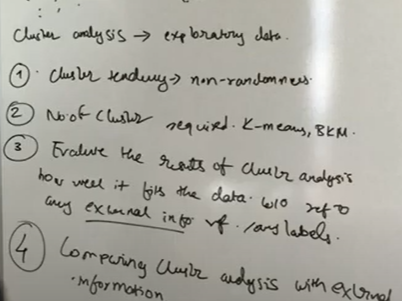 Cluster analysis → exploratory data.
① Cluster tendency → non-randomness.
② No. of Cluster required. K-means, BKM.
③ Evaluate the results of Cluster analysis
how well it fits the data w/o ref to
any external info labels.
④ Comparing Cluster analysis with external
information